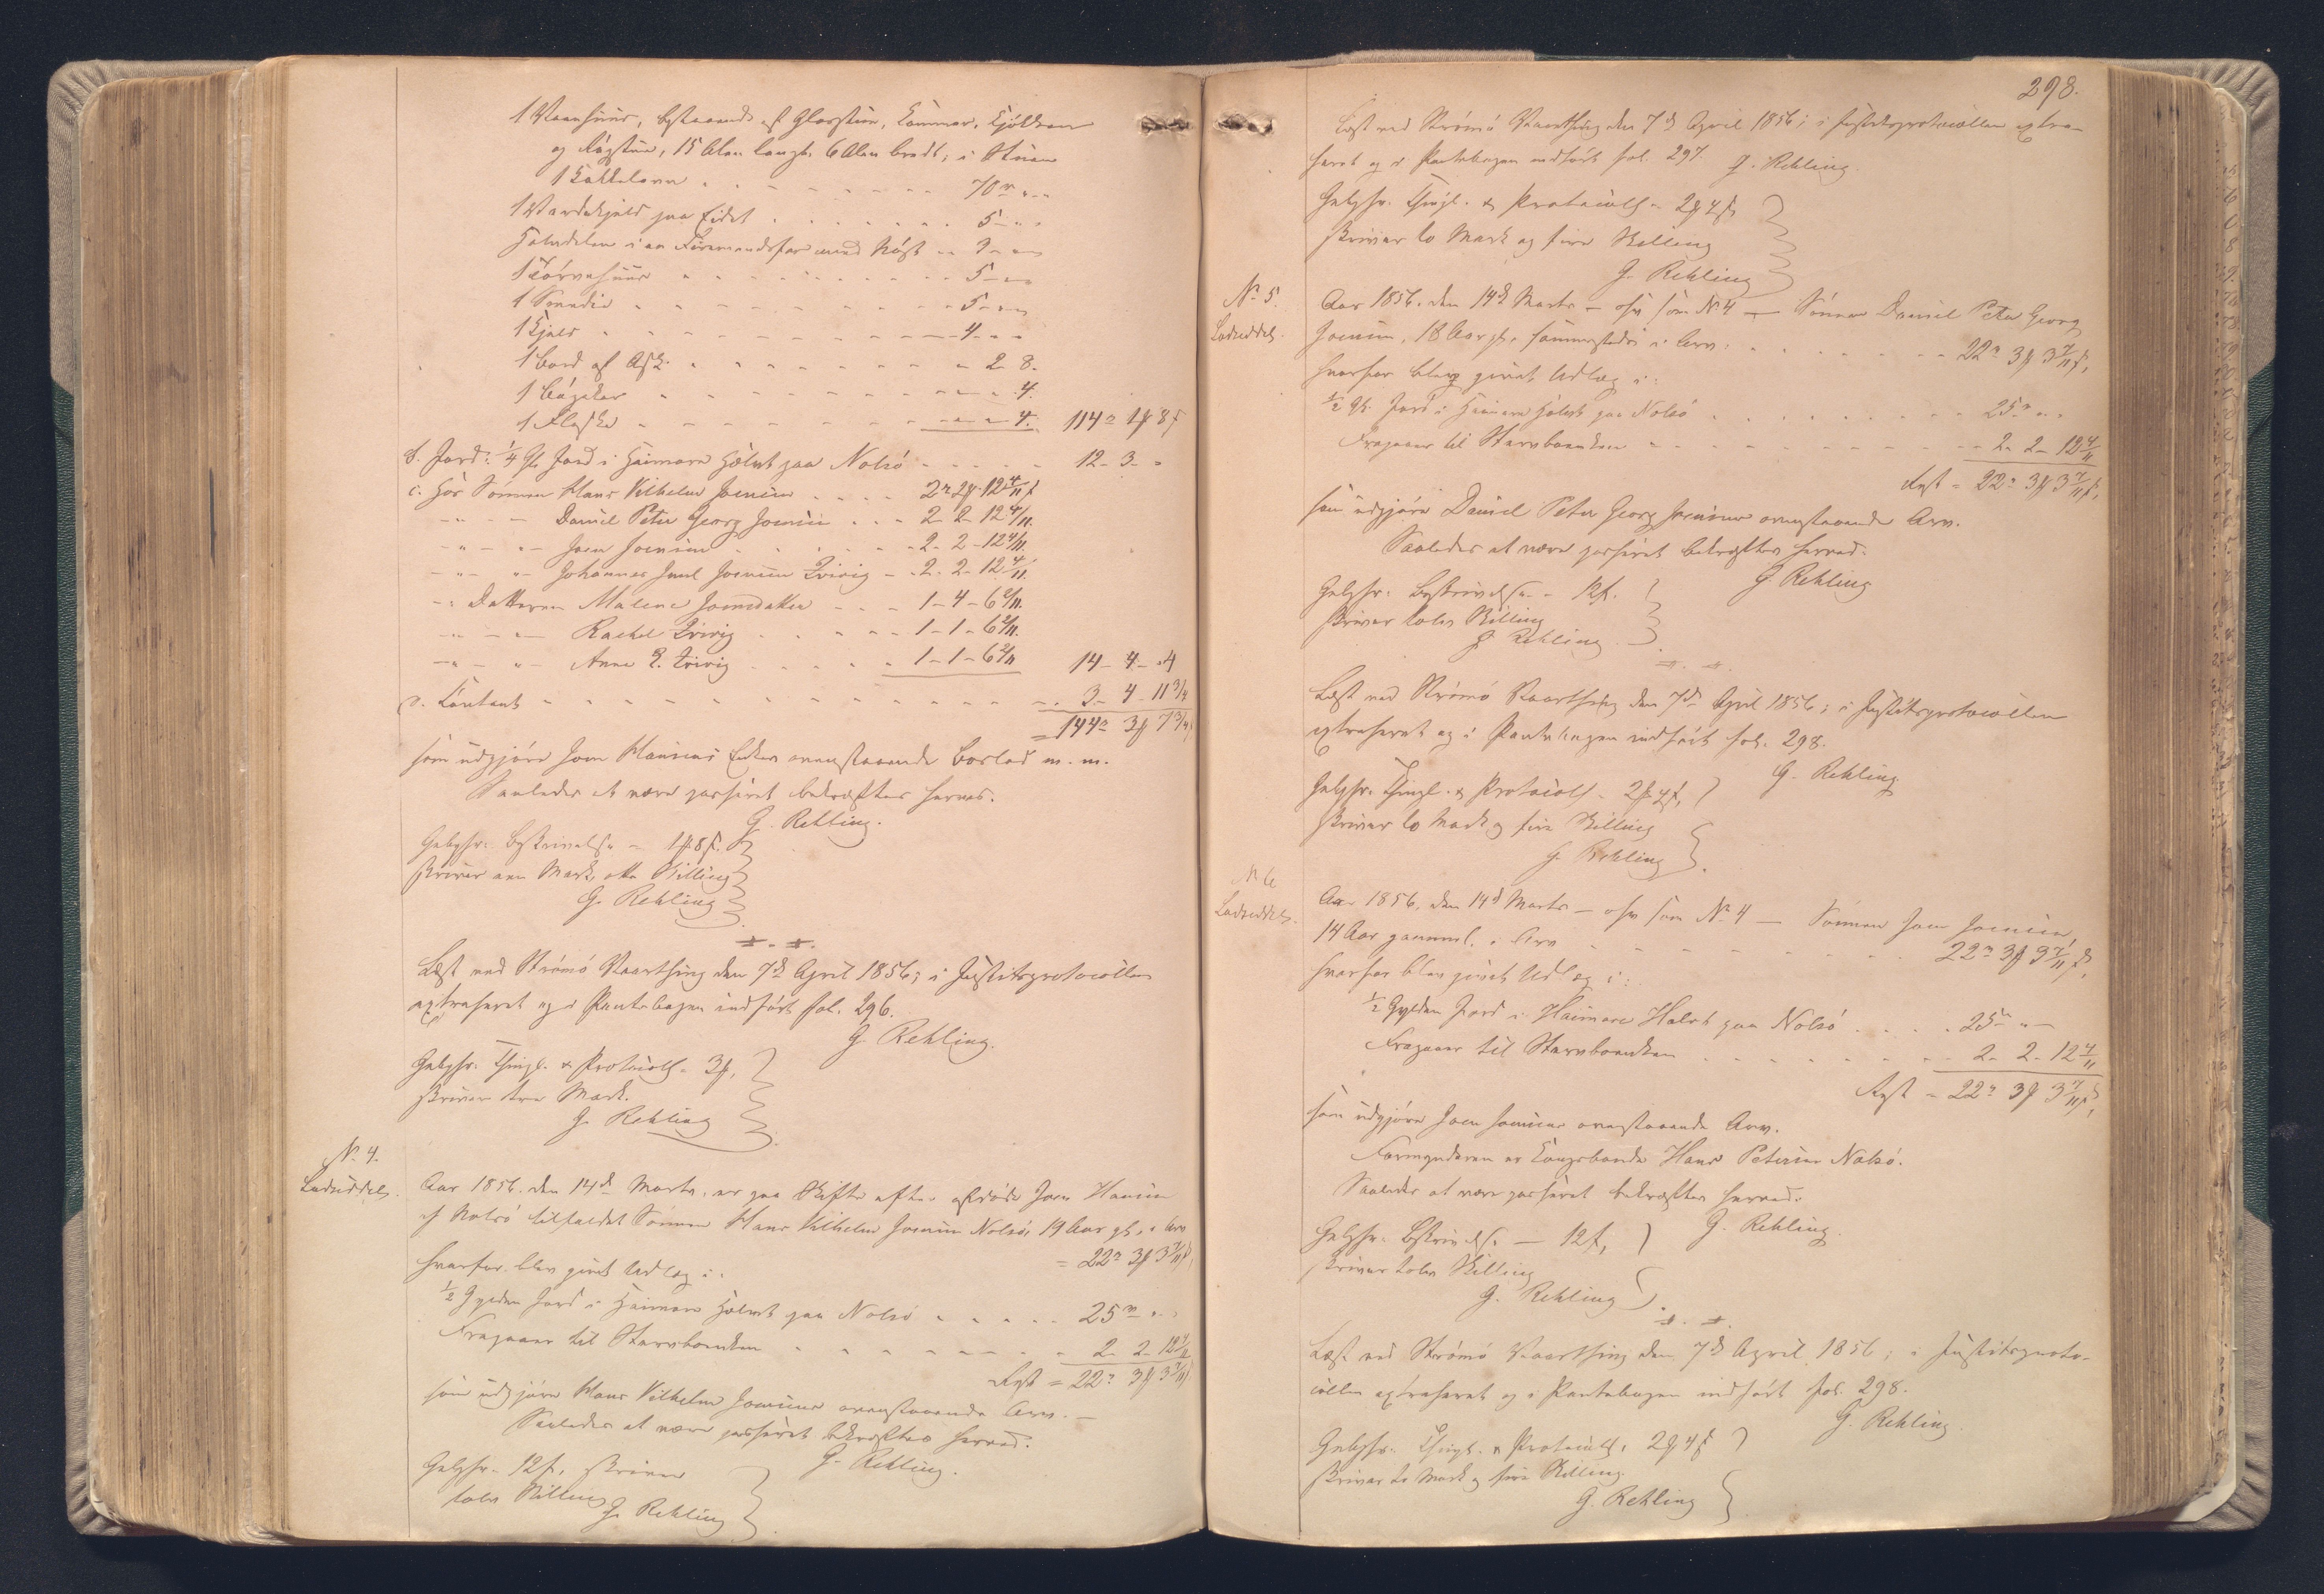 1 Vaanhuus, bestaaende af Glarstue, Kammer, Kjökken
og Rögstue, 15 Alen langt, 6 Alen bredt; i Stuen
1 Kakkelovn - - - 70 rd " - "
1 paa Eidet - - - 5 - " - "
Halvdelen i en med Nöst - "
1 Törvehuus - - - 5 - " - "
1 - - - 5 - " - "
1 Kjeld - - - 4 - " - "
1 Bord af Ask - - - " 2 - 8.
1 - - - " - " - 4.
1 Flaske - - - " - " - 4. 114 rd 1 ꝟ 8 ß
b. Jord: 1/4 Gl. Jord i Heimare Halvt paa Nolsö - - - 12 - 3 - "
c. Hos Sönnen Hans Vilhelm Joensen - - - 2 rd 2 ꝟ 12 4/11 ß
- " - Daniel Peter Georg Joensen - - - 2 - 2 - 12 4/11.
- " - Joen Joensen - - - 2 - 2 - 12 4/11.
- " - Johannes Joensen - 2 - 2 - 12 4/11.
- " Datteren Malene Joensdatter - - - 1 - 4 - 6 2/11.
- " - Rachel - - - 1 - 1 - 6 2/11.
- " - Anne E. - - - 1 - 1 - 6 2/11 14 - 4 - " 4
d. Contant - - - 3 - 4 - 11 3/4
= 144 rd 3 ꝟ 7 3/4 ß
som udgjöre Joen Hansens Enkes ovenstaaende Boslod m. m.
Saaledes at være passeret bekræftes herved.
G. Rehling.
Gebyhr: Beskrivelse - 1 ꝟ 8 ß.
skriver een Mark, otte Skilling
G. Rehling
Læst ved Strömö Vaarthing den 7de April 1856; i Justitsprotocollen
extraheret og i Pantebogen indfört fol. 296.
G. Rehling.
Gebyhr. Thingl. & Protocoll. 3 ꝟ,
skriver tre Mark.
G. Rehling
No 4.
Lodseddel.
Aar 1856. den 14de Marts, er paa Skifte efter afdöde Joen Hansen
af Nolsö tilfaldet Sönnen Hans Vilhelm Joensen Nolsö, 19 Aar gl., i Arv
= 22 rd 3 ꝟ 3 7/11 ß,
hvorfor blev givet Udlæg i:
1/2 Gylden Jord i Heimare Halvt paa Nolsö - - - 25 rd " - "
Fragaaer til Stervboenken - - - 2 - 2 - 12 4/11
Rest = 22 rd 3 ꝟ 3 7/11 ß
som udgjöre Hans Vilhelm Joensens ovenstaaende Arv. -
Saaledes at være passeret bekræftes herved.
G. Rehling.
Gebyhr. 12 ß, skriver
tolv Skilling
G. Rehling
298.
Læst ved Strömö Vaarthing den 7de April 1856; i Justitsprotocollen extra-
heret og i Pantebogen indfört fol. 297.
G. Rehling.
Gebyhr. Thingl. & Protocoll - 2 ꝟ 4 ß
skriver to Mark og fire Skilling
G. Rehling
No 5.
Lodseddel.
Aar 1856. den 14de Marts - osv som No 4 - Sönnen Daniel Peter Georg
Joensen, 18 Aar gl., sammesteds i Arv - - - 22 rd 3 ꝟ 3 7/11 ß,
hvorfor blev givet Udlæg i:
1/2 Gl. Jord i Heimare Halvt paa Nolsö - - - 25 rd " - "
Fragaaer til Stervboenken - - - 2 - 2 - 12 4/11
Rest = 22 rd 3 ꝟ 3 7/11 ß,
som udgjöre Daniel Peter Georg Joensens ovenstaaende Arv.
Saaledes at være passeret bekræftes herved.
G Rehling
Gebyhr: Beskrivelse - 12 ß.
skriver tolv Skilling
G Rehling
Læst ved Strömö Vaarthing den 7de April 1856; i Justitsprotocollen
extraheret og i Pantebogen indfört fol. 298.
G. Rehling
Gebyhr. Thingl. & Protocoll - 2 ꝟ 4 ß,
skriver to Mark og fire Skilling
G. Rehling
No 6
Lodseddel.
Aar 1856, den 14de Marts - osv som No 4 - Sönnen Joen Joensen,
14 Aar gammel, i Arv - - - 22 rd 3 ꝟ 3 7/11 ß,
hvorfor blev givet Udlæg i:
1/2 Gylden Jord i Haimare Halvt paa Nolsö - - - 25 rd " -
Fragaaer til Stervboenken - - - 2 - 2 - 12 4/11
Rest = 22 rd 3 ꝟ 3 7/11 ß,
som udgjöre Joen Joensens ovenstaaende Arv.
Formynderen er Kongsbonde Hans Petersen Nolsö.
Saaledes at være passeret bekræftes herved.
G. Rehling.
Gebyhr. Beskrivelse - 12 ß,
skriver tolv Skilling
G. Rehling
Læst ved Strömö Vaarthing den 7de April 1856; i Justitsproto-
collen extraheret og i Pantebogen indfört fol. 298.
G. Rehling
Gebyhr. Thingl. & Protocoll. 2 ꝟ 4 ß
skriver to Mark og fire Skilling.
G. Rehling